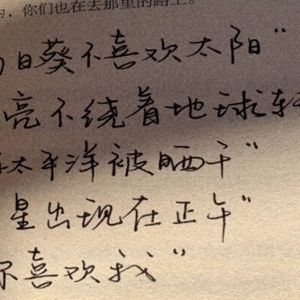 ，你们也在去那里的路上。
日葵不喜欢太阳"
亮不绕着地球转
太平洋被晒干"
星出现在正午"
你喜欢我"